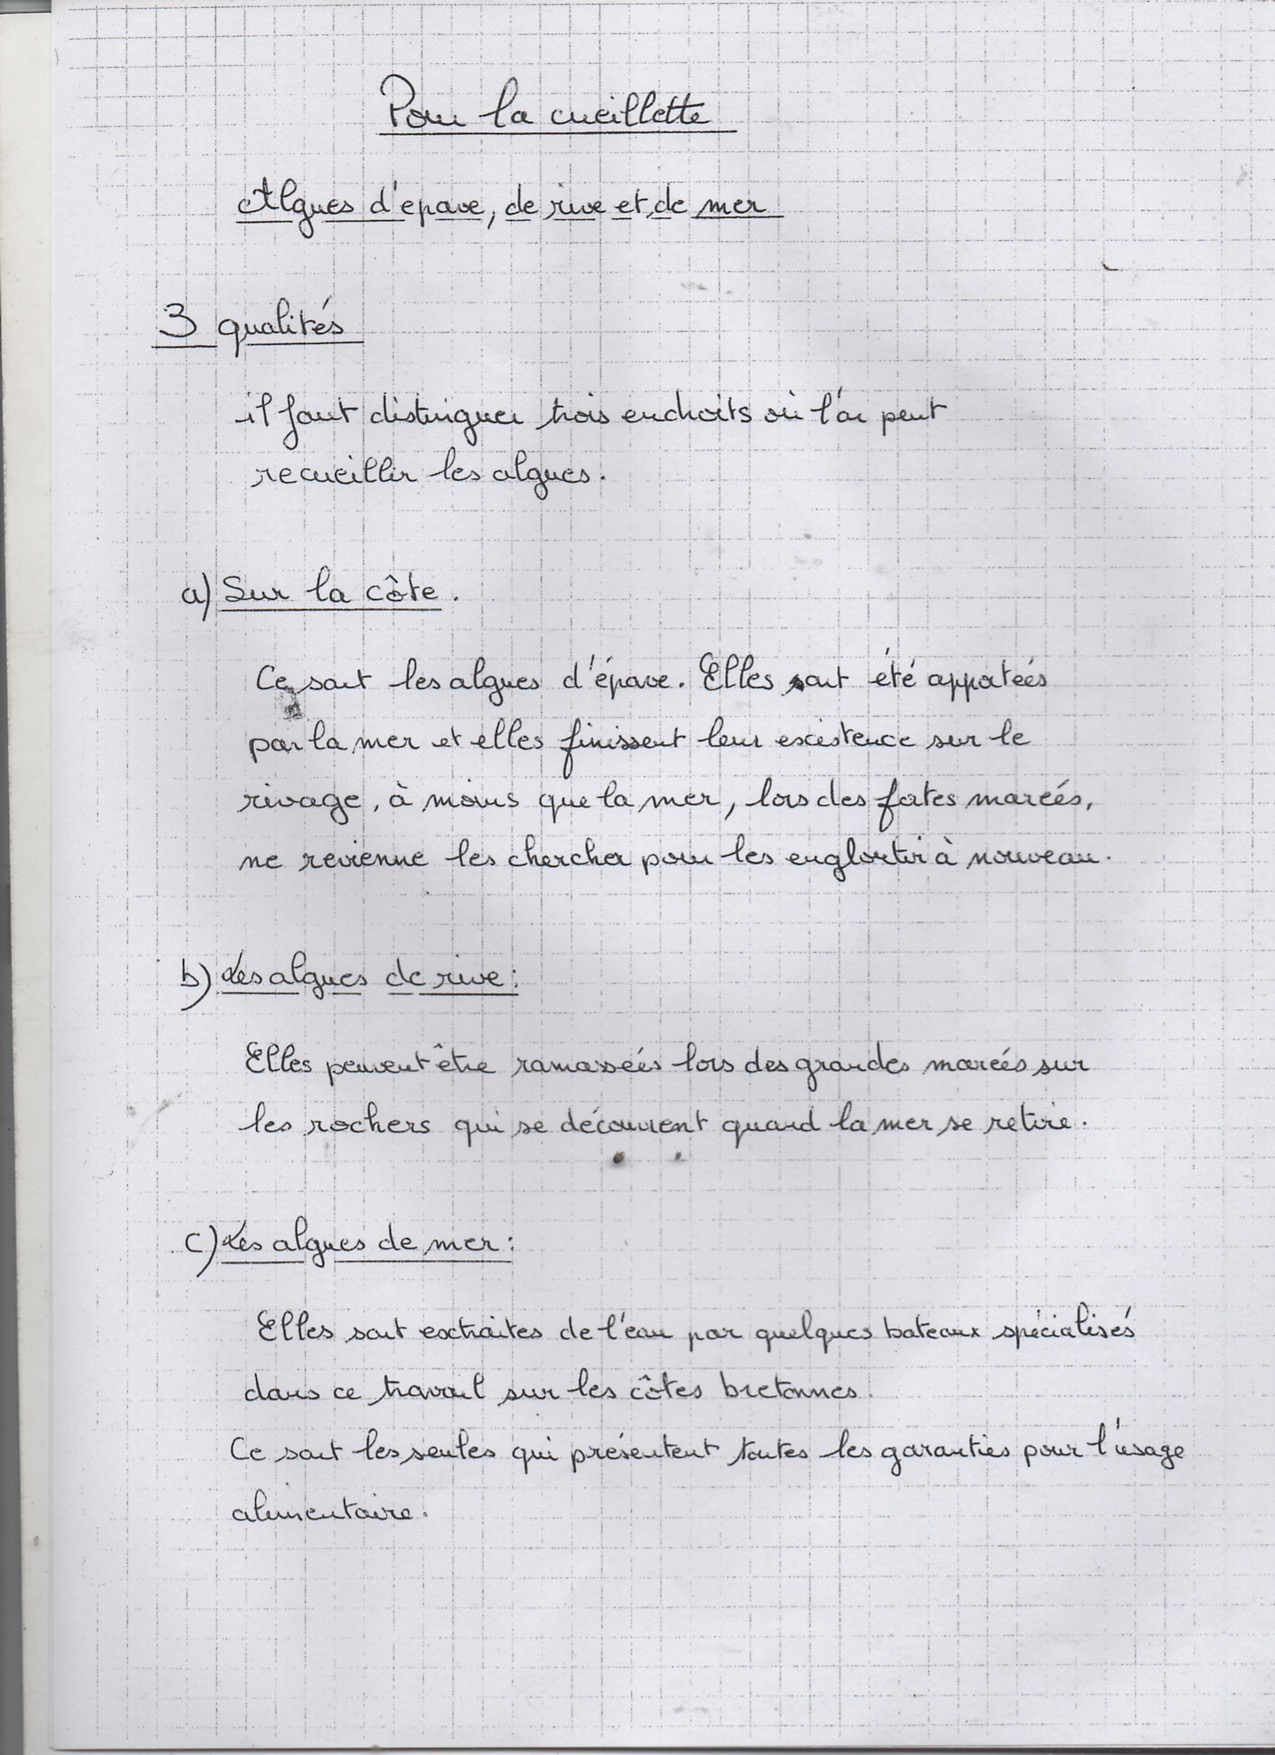 Pour la cueillette
Algues d'epave, de rive et de mer
3 qualités
il faut distinguer trois endroits où l'on peut
recueillir les algues.
a) Sur la côte.
Ce sont les algues d'épave. Elles ont été apportées
par la mer et elles finissent leur existence sur le
rivage, à moins que la mer, lors des fortes marées,
ne revienne les chercher pour les engloutir à nouveau.
b) Les algues de rive :
Elles peuvent être ramassées lors des grandes marées sur
les rochers qui se découvrent quand la mer se retire.
c) Les algues de mer :
Elles sont extraites de l'eau par quelques bateaux spécialisés
dans ce travail sur les côtes bretonnes.
Ce sont les seules qui présentent toutes les garanties pour l'usage
alimentaire.